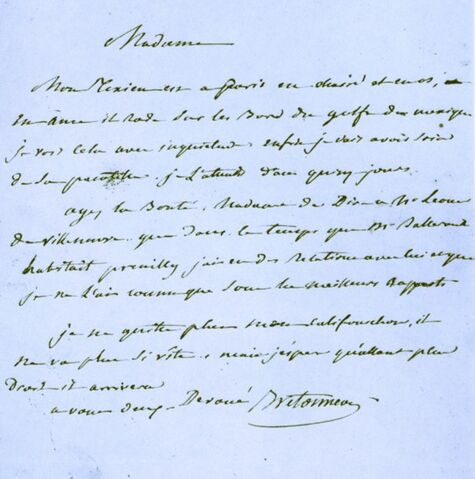 Madame
Mon Mexicain est a Paris en chair et en os,
en âme il rode sur les Bord du golfe du mexique
je vois cela avec inquietude enfin je vais avoir soin
de sa pacotille. je l'attends dans quinze jours.
ayez la Bonté, Madame de Dire a Mr Leon
de Villeneuve que dans le temps que Mr
habitait preuilly j'ai eu des relations avec lui et que
je ne l'ai connu que sous les meilleurs Rapports
je ne quitte plus mon Califourchon, il
ne va plus si vite, mais j'espere qu'allant plus
Droit il arrivera
a vous Devoué Bretonneau